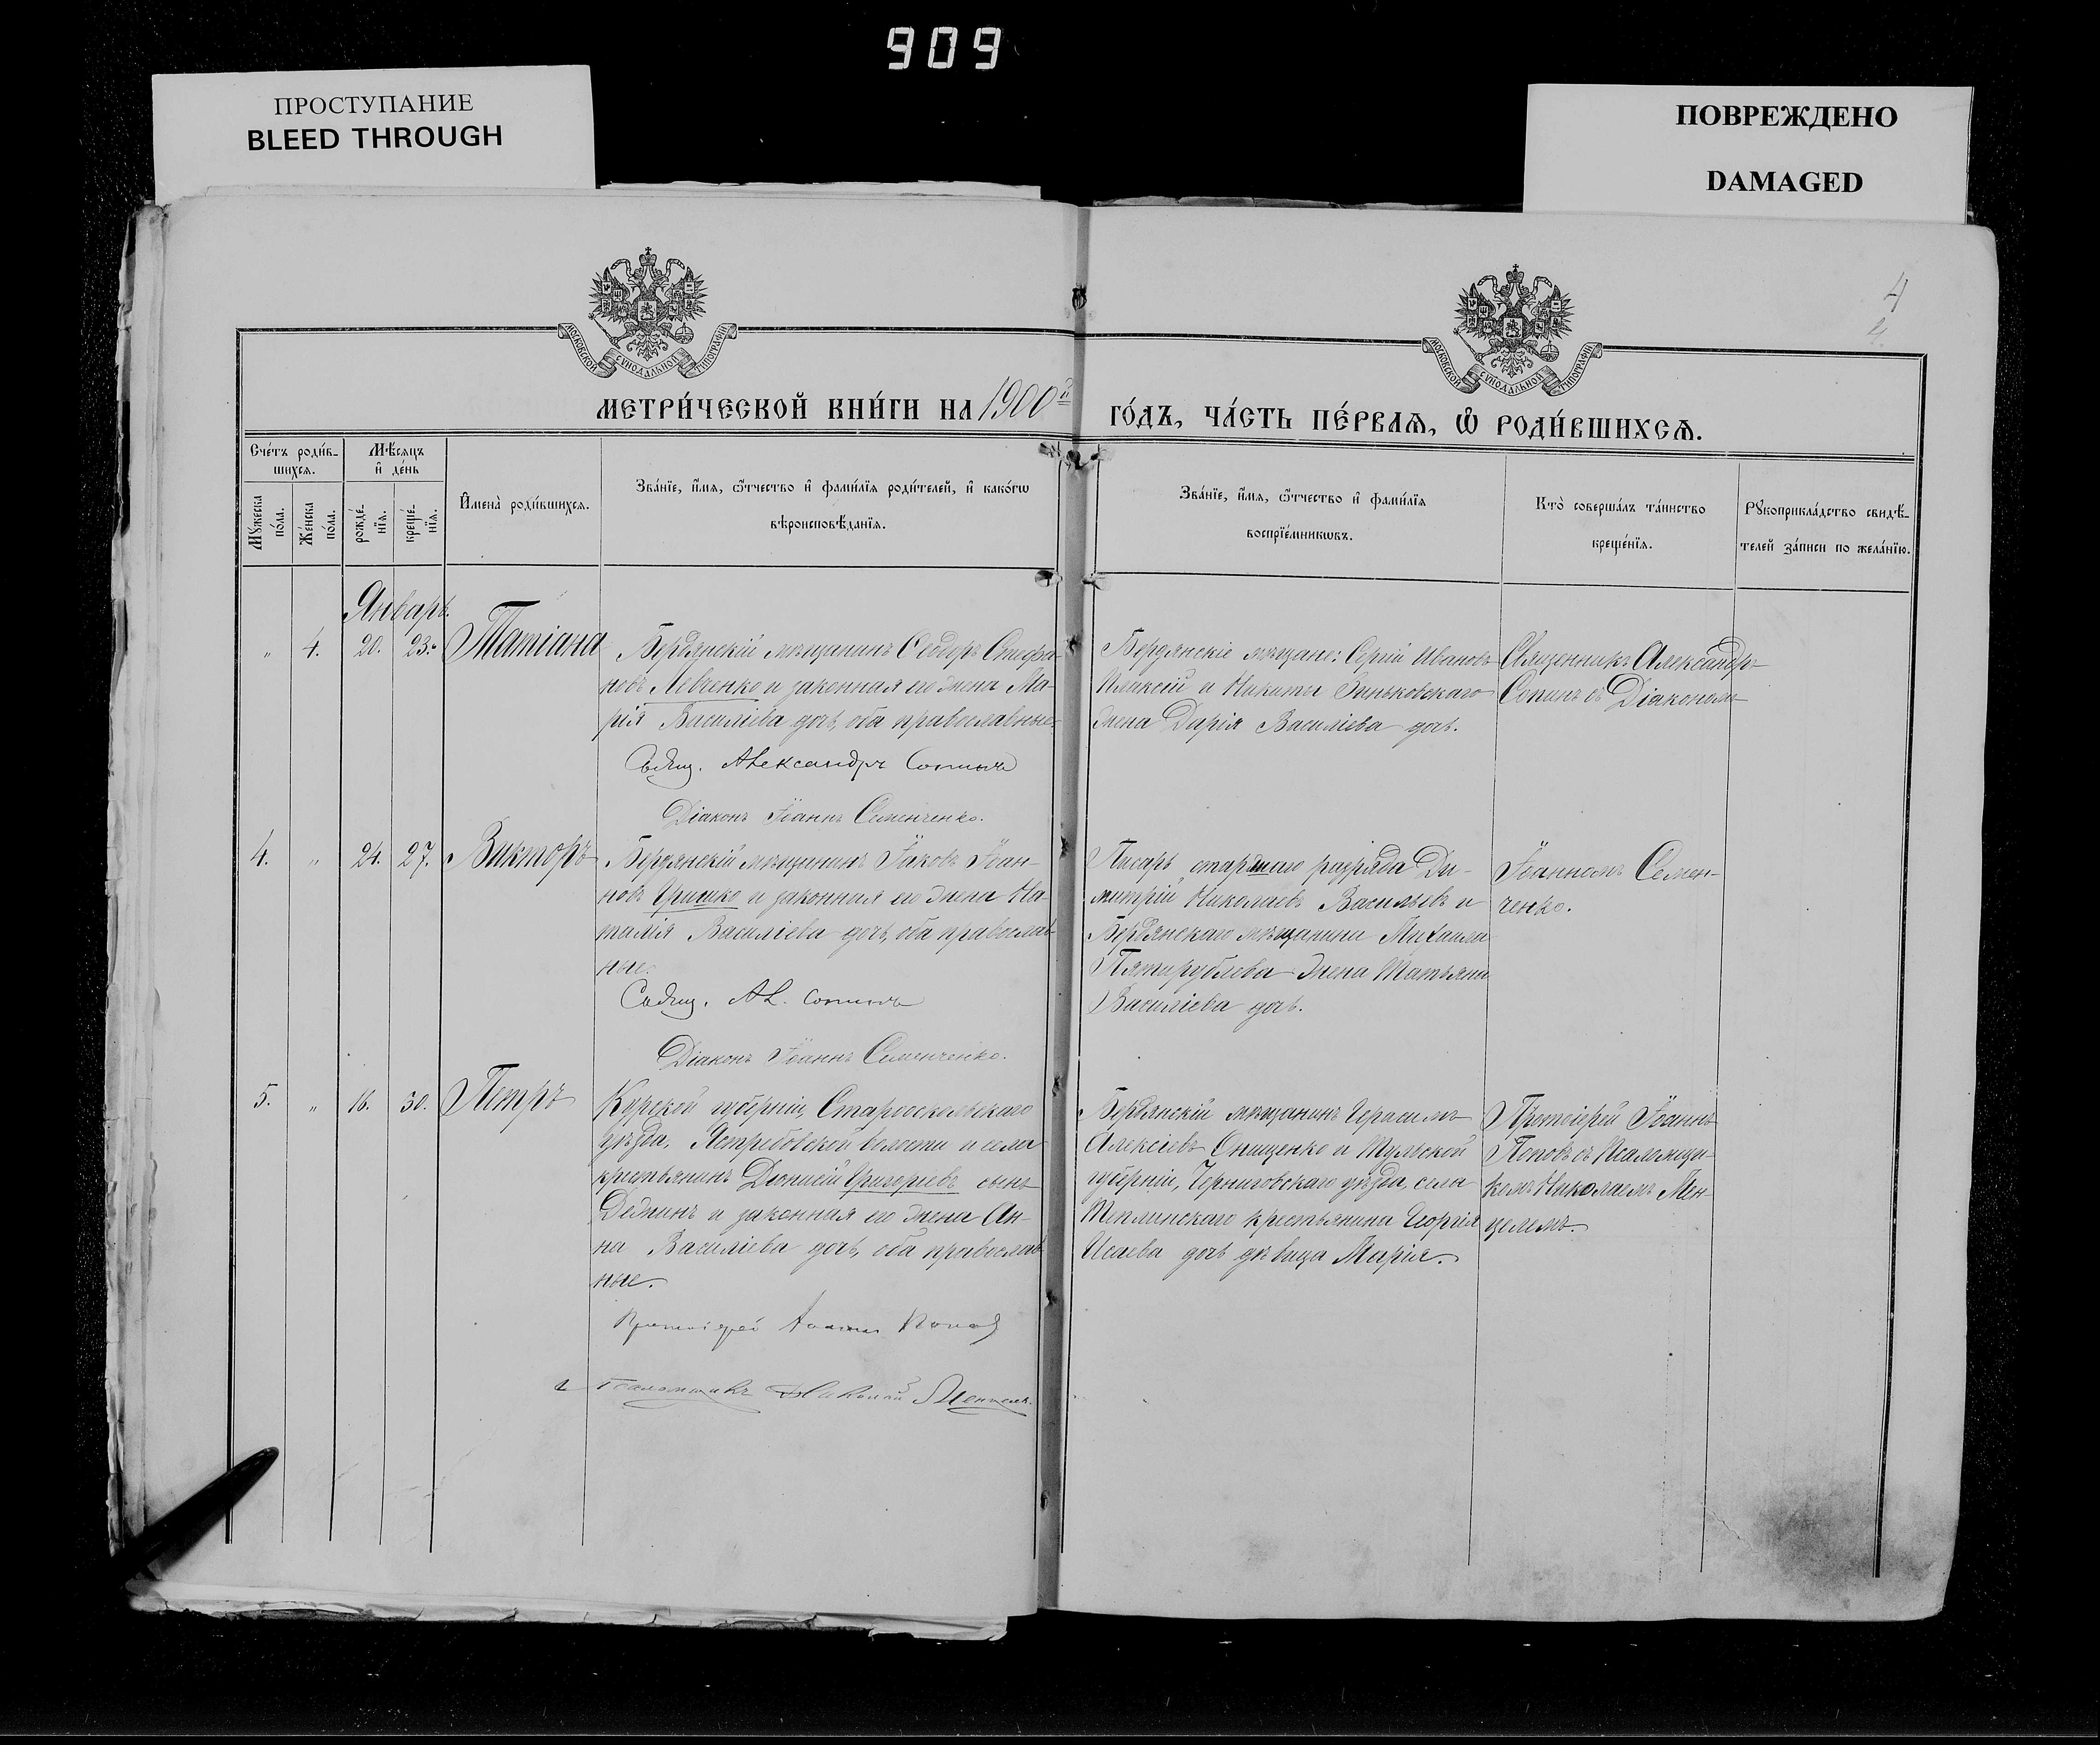 909
ПРОСТУПАНИЕ
BLEED THROUGH
ПОВРЕЖДЕНО
DAMAGED
4
МОСКОВСКОЙ СѴНОДАЛЬНОЙ ТИПОГРАФІИ
МОСКОВСКОЙ СѴНОДАЛЬНОЙ ТИПОГРАФІИ
МЕТРИ́ЧЕСКОЙ КНИ́ГИ НА 1900й
ГО́ДЪ, ЧА́СТЬ ПЕ́РВАѦ, Ѡ҆ РОДИ́ВШИХСѦ.
Сче́тъ роди́в-
шихся.
Мѣ́сяцъ
и҆ де́нь
Мꙋ́жеска
по́ла.
Же́нска
по́ла.
рожде́-
нїя.
креще́-
нїя.
И҆мена̀ роди́вшихся.
Зва́нїе, и҆́мя, ѻ҆́тчество и҆ фами́лїя роди́телей, и҆ како́гѡ
вѣроисповѣ́данїя.
Зва́нїе, и҆́мя, ѻ҆́тчество и҆ фами́лїя
воспрїе́мникѡвъ.
Кто̀ соверша́лъ та́инство
креще́нїя.
Рꙋкоприкла́дство свидѣ́-
телей за́писи по жела́нїю.
Январь.
„ 4. 20. 23. Татіана
Бердянскій мѣщанинъ Ѳеодоръ Стефа-
новъ Левченко и законная его жена Ма-
рія Василіева дочь, оба православные.
Свящ. Александръ Сопинъ
Діаконъ Іоаннъ Семенченко.
Бердянскіе мѣщане: Сергій Ивановъ
Плаксій и Никиты Зиньковскаго
жена Дарія Василіева дочь.
Священникъ Александръ
Сопинъ съ Діакономъ
4. „ 24. 27. Викторъ
Бердянскій мѣщанинъ Іаковъ Іоан-
новъ Гришко и законная его жена На-
талія Василіева дочь, оба православ-
ные.
Свящ. Ал. Сопинъ
Діаконъ Іоаннъ Семенченко.
Писарь старшаго разряда Ди-
митрій Николаевъ Васильевъ и
Бердянскаго мѣщанина Михаила
Пятирублева жена Татьяна
Василіева дочь.
Іоанномъ Семен-
ченко.
5. „ 16. 30. Петръ
Курской губерніи, Старооскольскаго
уѣзда, Ястребовской волости и села
крестьянинъ Діонисій Григоріевъ сынъ
Дежинъ и законная его жена Ан-
на Василіева дочь, оба православ-
ные.
Протоіерей Іоаннъ Поповъ
Псаломщикъ Николай Менцель.
Бердянскій мѣщанинъ Герасимъ
Алексіевъ Онищенко и Тульской
губерніи, Черниговскаго уѣзда, села
Теплинскаго крестьянина Георгія
Исаева дочь дѣвица Марія.
Протоіерей Іоаннъ
Поповъ съ Псаломщи-
комъ Николаемъ Мен-
целемъ.